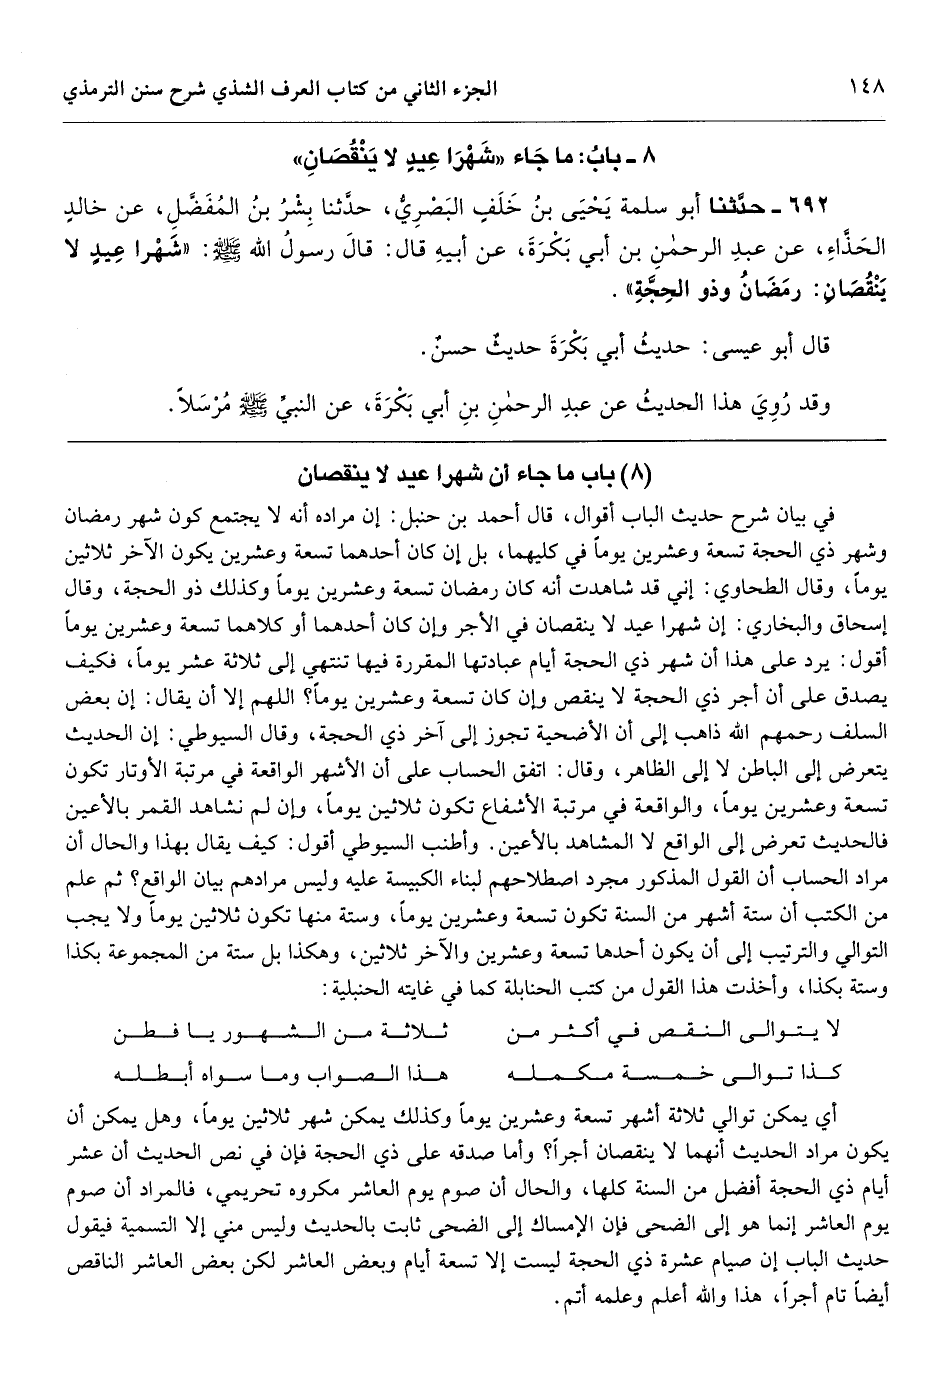 ١٤٨ الجزء الثاني من كتاب العرف الشذي شرح سنن الترمذي
٨ ـ بابُ: ما جَاء «شَهْرَا عِيدٍ لا يَنْقُصَانِ»
٦٩٢ ـ حدَّثنا أبو سلمة يَحْيَى بنُ خَلَفٍ البَصْرِيُّ، حدَّثنا بِشْرُ بنُ المُفَضَّلِ، عن خالدٍ
الحَذَّاءِ، عن عبدِ الرحمٰنِ بن أبي بَكْرَةَ، عن أبيهِ قال: قالَ رسولُ الله ﷺ: «شَهْرا عِيدٍ لا
يَنْقُصَانِ: رمَضَانُ وذو الحِجَّةِ» .
قال أبو عيسى: حديثُ أبي بَكْرَةَ حديثٌ حسنٌ.
وقد رُوِيَ هذا الحديثُ عن عبدِ الرحمٰنِ بنِ أبي بَكْرَةَ، عن النبيِّ ﷺ مُرْسَلاً.
(٨) باب ما جاء أن شهرا عيد لا ينقصان
في بيان شرح حديث الباب أقوال، قال أحمد بن حنبل: إن مراده أنه لا يجتمع كون شهر رمضان
وشهر ذي الحجة تسعة وعشرين يوماً في كليهما، بل إن كان أحدهما تسعة وعشرين يكون الآخر ثلاثين
يوماً، وقال الطحاوي: إني قد شاهدت أنه كان رمضان تسعة وعشرين يوماً وكذلك ذو الحجة، وقال
إسحاق والبخاري: إن شهرا عيد لا ينقصان في الأجر وإن كان أحدهما أو كلاهما تسعة وعشرين يوماً
أقول: يرد على هذا أن شهر ذي الحجة أيام عبادتها المقررة فيها تنتهي إلى ثلاثة عشر يوماً، فكيف
يصدق على أن أجر ذي الحجة لا ينقص وإن كان تسعة وعشرين يوماً؟ اللهم إلا أن يقال: إن بعض
السلف رحمهم الله ذاهب إلى أن الأضحية تجوز إلى آخر ذي الحجة، وقال السيوطي: إن الحديث
يتعرض إلى الباطن لا إلى الظاهر، وقال: اتفق الحساب على أن الأشهر الواقعة في مرتبة الأوتار تكون
تسعة وعشرين يوماً، والواقعة في مرتبة الأشفاع تكون ثلاثين يوماً، وإن لم نشاهد القمر بالأعين
فالحديث تعرض إلى الواقع لا المشاهد بالأعين. وأطنب السيوطي أقول: كيف يقال بهذا والحال أن
مراد الحساب أن القول المذكور مجرد اصطلاحهم لبناء الكبيسة عليه وليس مرادهم بيان الواقع؟ ثم علم
من الكتب أن ستة أشهر من السنة تكون تسعة وعشرين يوماً، وستة منها تكون ثلاثين يوماً ولا يجب
التوالي والترتيب إلى أن يكون أحدها تسعة وعشرين والآخر ثلاثين، وهكذا بل ستة من المجموعة بكذا
وستة بكذا، وأخذت هذا القول من كتب الحنابلة كما في غايته الحنبلية:
لا يتوالى النقص في أكثر من ثلاثة من الشهور يا فطن
كذا توالى خمسة مكمله هذا الصواب وما سواه أبطله
أي يمكن توالي ثلاثة أشهر تسعة وعشرين يوماً وكذلك يمكن شهر ثلاثين يوماً، وهل يمكن أن
يكون مراد الحديث أنهما لا ينقصان أجراً؟ وأما صدقه على ذي الحجة فإن في نص الحديث أن عشر
أيام ذي الحجة أفضل من السنة كلها، والحال أن صوم يوم العاشر مكروه تحريمي، فالمراد أن صوم
يوم العاشر إنما هو إلى الضحى فإن الإمساك إلى الضحى ثابت بالحديث وليس مني إلا التسمية فيقول
حديث الباب إن صيام عشرة ذي الحجة ليست إلا تسعة أيام وبعض العاشر لكن بعض العاشر الناقص
أيضاً تام أجراً، هذا والله أعلم وعلمه أتم.